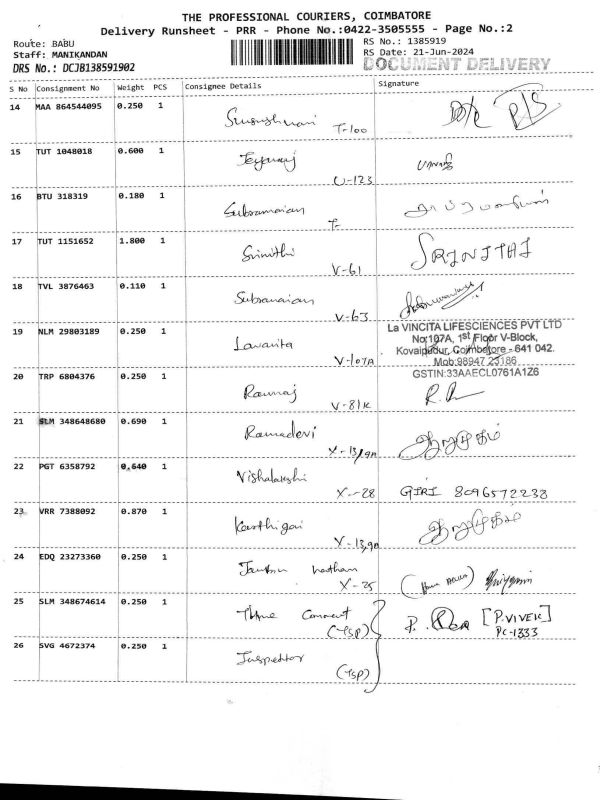 THE PROFESSIONAL COURIERS, COIMBATORE
Delivery Runsheet - PRR - Phone No.:0422-3505555 - Page No.:2
Route: BABU
RS No.: 1385919
Staff: MANIKANDAN
RS Date: 21-Jun-2024
DRS No.: DCJB138591902
DOCUMENT DELIVERY
S No Consignment No Weight PCS Consignee Details Signature
14 MAA 864544095 0.250 1
T-100
15 TUT 1048018 0.600 1 Jeyaraj
U-123
16 BTU 318319 0.180 1 Subramanian
T-
17 TUT 1151652 1.800 1 Srinithi SRINITHI
V-61
18 TVL 3876463 0.110 1 Subramanian
V-63
19 NLM 29803189 0.250 1 Lavanita
V-107A
La VINCITA LIFESCIENCES PVT LTD
No:107A, 1st Floor V-Block,
Kovaipudur, Coimbatore - 641 042.
Mob:98947 23186
GSTIN:33AAECL0761A1Z6
20 TRP 6804376 0.250 1
V-81K
21 SLM 348648680 0.690 1 Ramadevi ஆறுமுகம்
X-13/9A
22 PGT 6358792 0.640 1 Vishalakshi GIRI 8096572238
X-28
23 VRR 7388092 0.870 1 Karthigai ஆறுமுகம்
X-13,9A
24 EDQ 23273360 0.250 1
X-25
25 SLM 348674614 0.250 1 [P.VIVEK]
(TSP) PC-1333
26 SVG 4672374 0.250 1 Inspector
(TSP)